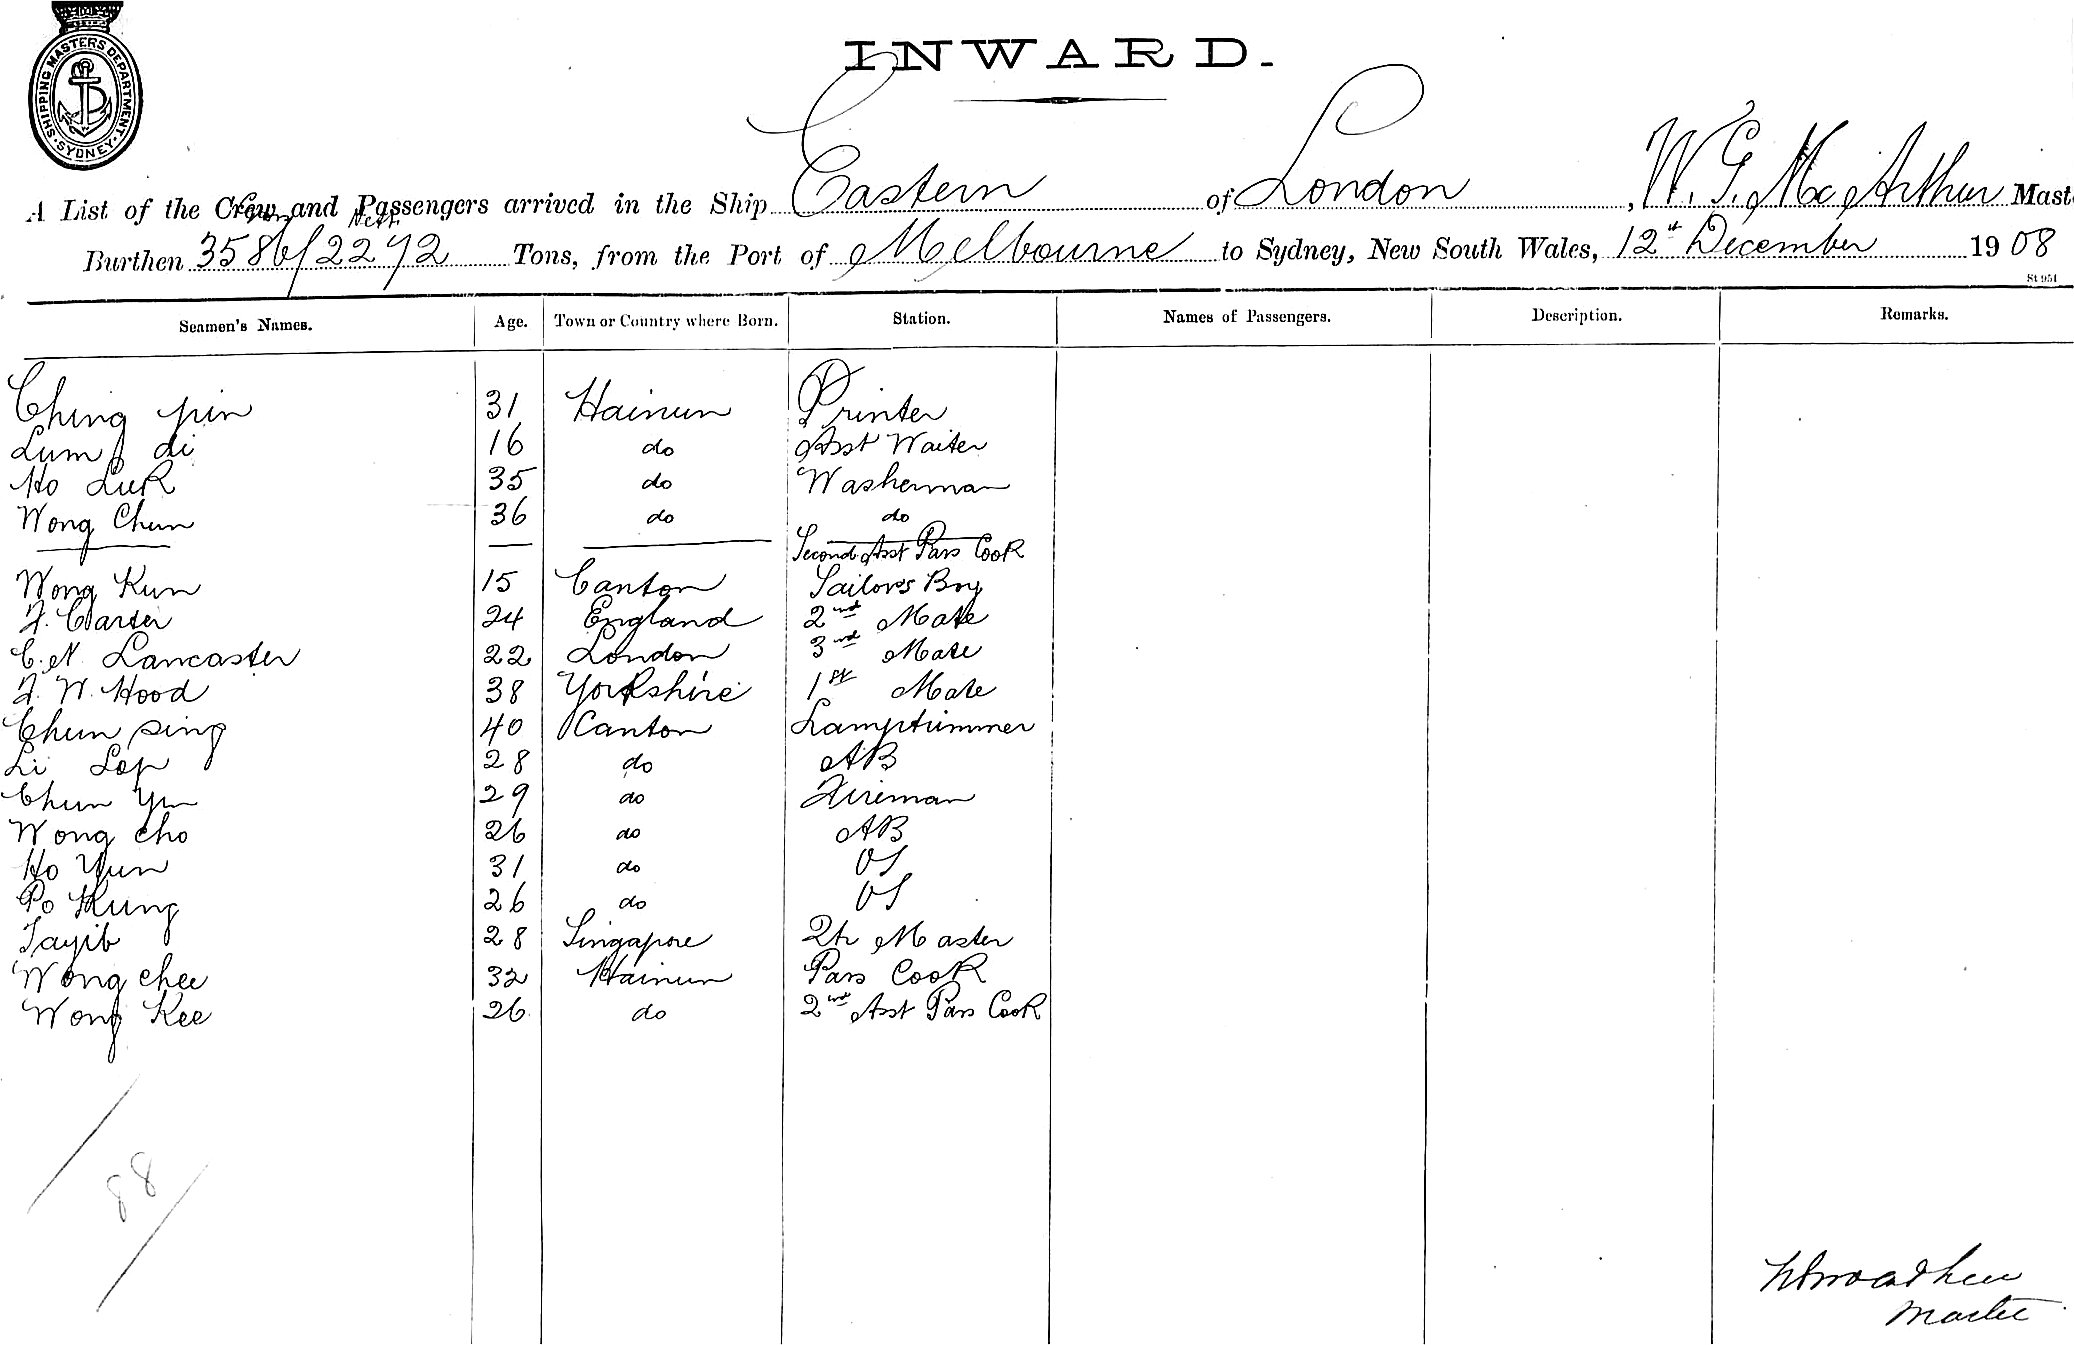 SHIPPING MASTERS DEPARTMENT. SYDNEY.
INWARD.
A List of the Crew and Passengers arrived in the Ship Eastern of London, W. G. McArthur Mast
Gross Nett
Burthen 3586/2272 Tons, from the Port of Melbourne to Sydney, New South Wales, 12th December 1908
St 951
Seamen's Names. Age. Town or Country where Born. Station. Names of Passengers. Description. Remarks.
Ching yin 31 Hainun Printer
Lum di 16 do Asst Waiter
Ho Luk 35 do Washerman
Wong Chun 36 do do
Second Asst Pass Cook
Wong Kun 15 Canton Sailors Boy
F. Carter 24 England 2nd Mate
C. N. Lancaster 22 London 3rd Mate
F. W. Hood 38 Yorkshire 1st Mate
Chun Sing 40 Canton Lamptrimmer
Li Lop 28 do AB
Chun Yun 29 do Fireman
Wong Cho 26 do AB
Ho Yun 31 do OS
Po Kung 26 do OS
Tayib 28 Singapore Qtr Master
Wong Chee 32 Hainun Pass Cook
Wong Kee 26 do 2nd Asst Pass Cook
88
Master